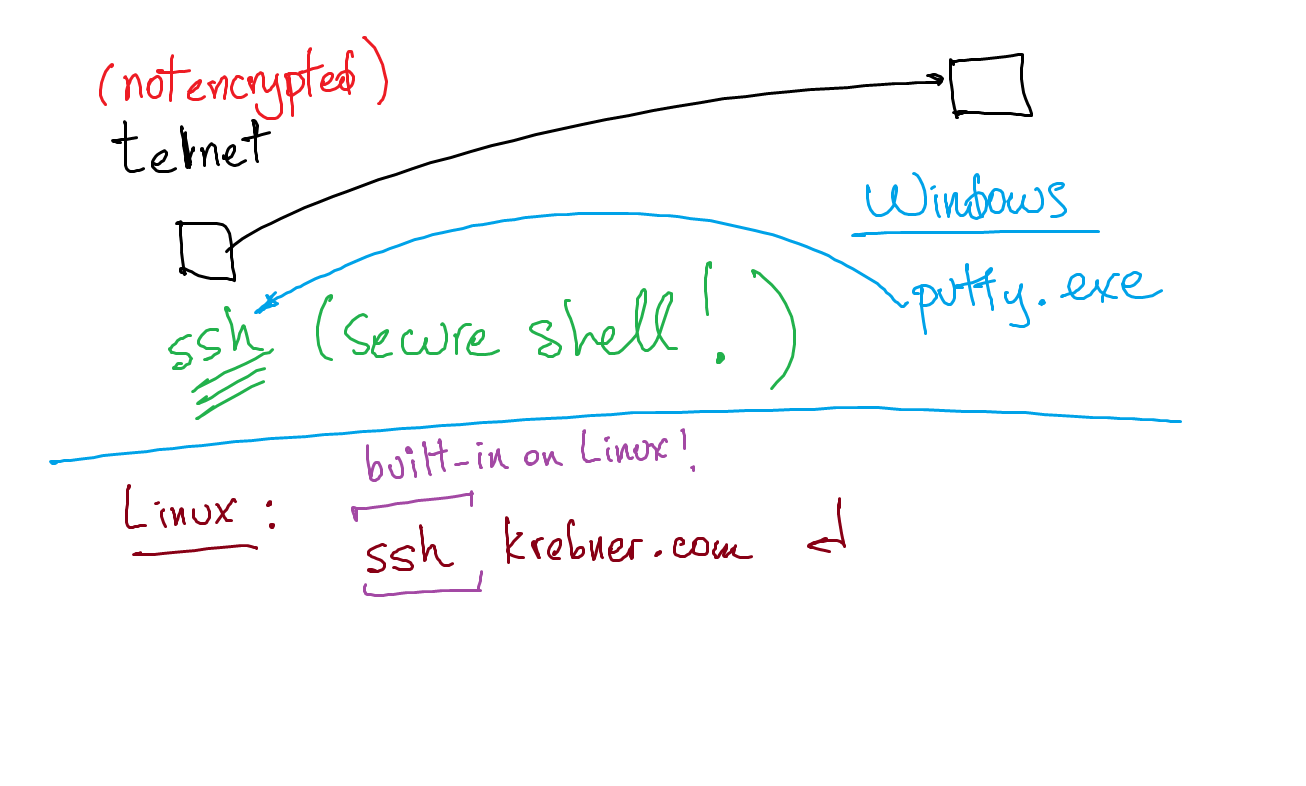 (not encrypted)
telnet
Windows
putty.exe
ssh (secure shell!)
built-in on Linux!
Linux: ssh krebner.com